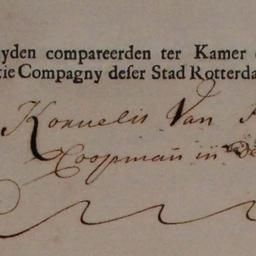 yden compareerden ter Kamer
tie Compagny deser Stad Rotterda
Kornelis Van
Coopman in De